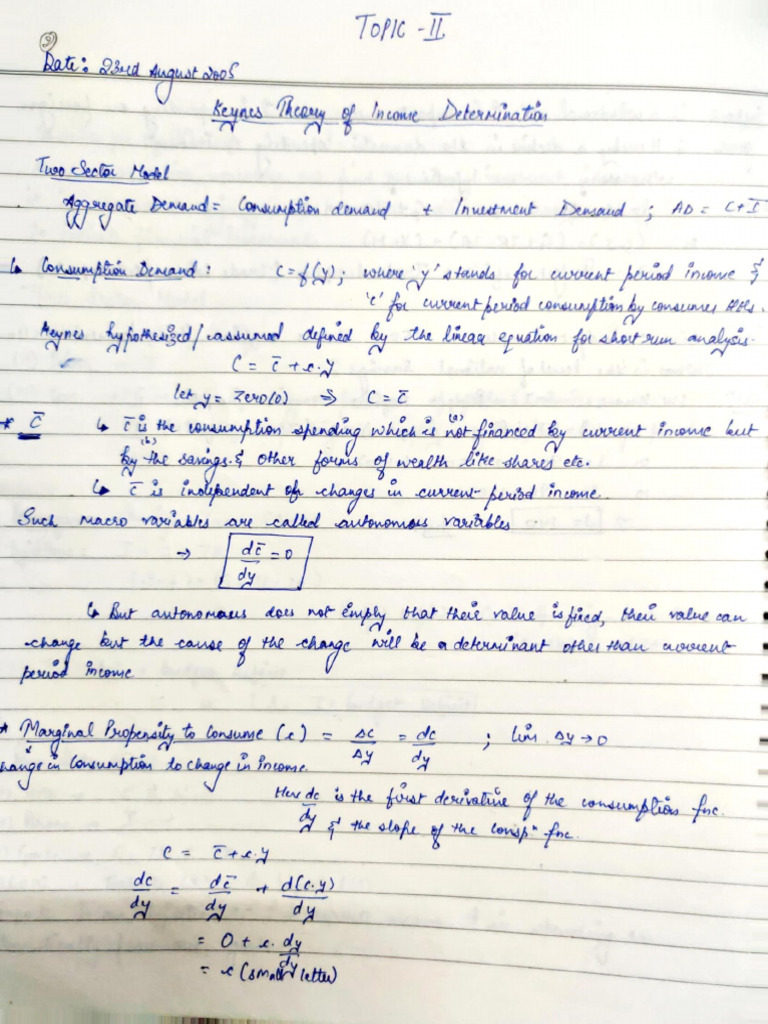 TOPIC - II
9
Date: 23rd August 2005
Keynes Theory of Income Determination
Two Sector Model
Aggregate Demand = Consumption demand + Investment Demand ; AD = C + I
↳ Consumption Demand : C = f(y) ; where 'y' stands for current period income &
'c' for current period consumption by consumes HHs.
Keynes hypothesized/assumed defined by the linear equation for short run analysis.
C = c̄ + c.y
let y = zero(0) ⇒ C = c̄
* C̄ ↳ c̄ is the consumption spending which is not (a) financed by current income but
by (b) the savings & other forms of wealth like shares etc.
↳ c̄ is independent of changes in current period income.
Such macro variables are called autonomous variables
→ dc̄/dy = 0
↳ But autonomous does not emply that their value is fixed, their value can
change but the cause of the change will be a determinant other than current
period income
* Marginal Propensity to Consume (c) = Δc/Δy = dc/dy ; lim Δy → 0
change in consumption to change in income.
Here dc/dy is the first derivative of the consumption fnc.
& the slope of the conspⁿ fnc.
C = c̄ + c.y
dc/dy = dc̄/dy + d(c.y)/dy
= 0 + c. dy/dy
= c (small letter)